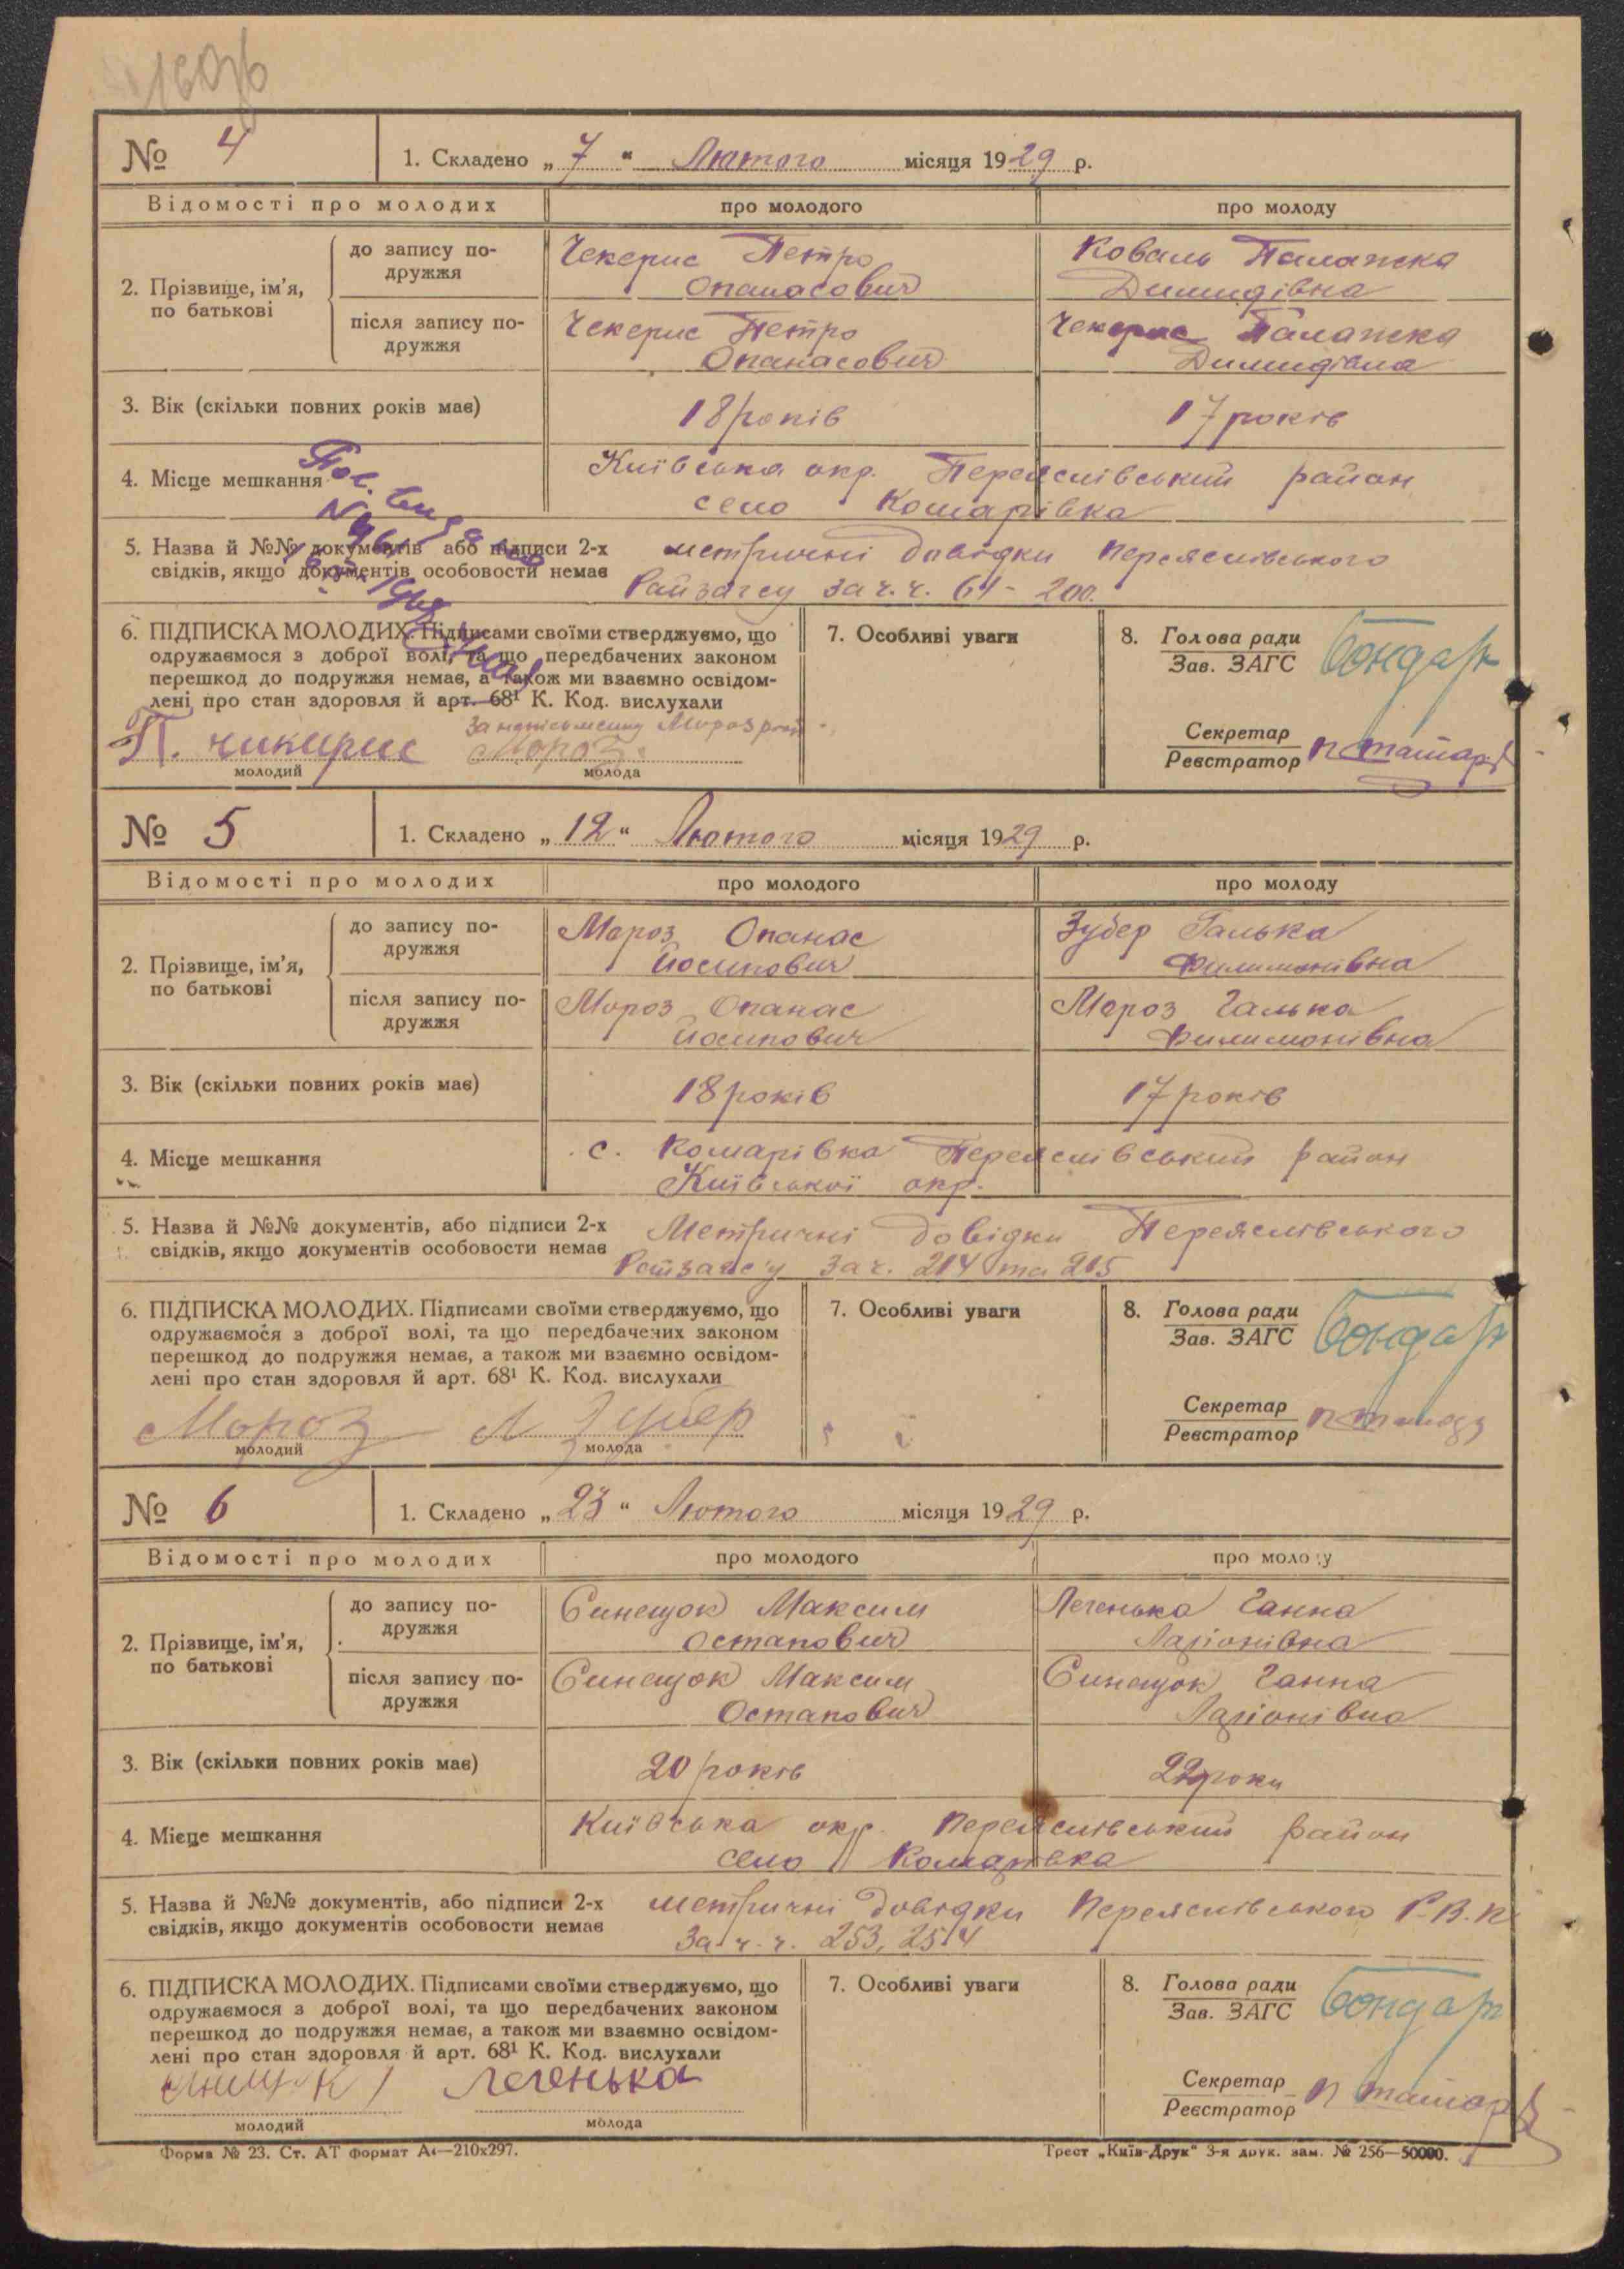 № 4
1. Складено „ 7 “ Лютого місяця 1929 р.
Відомості про молодих
про молодого
про молоду
2. Прізвище, ім’я, по батькові
до запису подружжя
Чекерис Петро
Опанасович
Коваль Палажка
Димидівна
після запису подружжя
Чекерис Петро
Опанасович
Чекерис Палажка
Димидівна
3. Вік (скільки повних років має)
18 років
17 років
4. Місце мешкання
Київська окр. Переяслівський район
село Комарівка
5. Назва й №№ документів або підписи 2-х
свідків, якщо документів особовости немає
метричні довідки Переяслівського
Райзагсу за ч.ч. 61 - 200.
6. ПІДПИСКА МОЛОДИХ. Підписами своїми стверджуємо, що
одружаємося з доброї волі, та що передбачених законом
перешкод до подружжя немає, а також ми взаємно освідом-
лені про стан здоровля й арт. 68¹ К. Код. вислухали
П. чикирис
За неписьменну Мороз
Мороз
молодий
молода
7. Особливі уваги
8. Голова ради
Зав. ЗАГС
Бондар
Секретар
Реєстратор
№ 5
1. Складено „ 12 “ Лютого місяця 1929 р.
Відомості про молодих
про молодого
про молоду
2. Прізвище, ім’я, по батькові
до запису подружжя
Мороз Опанас
Йосипович
Зубер Галька
Филимонівна
після запису подружжя
Мороз Опанас
Йосипович
Мороз Галька
Филимонівна
3. Вік (скільки повних років має)
18 років
17 років
4. Місце мешкання
с. Комарівка Переяслівський район
Київської окр.
5. Назва й №№ документів, або підписи 2-х
свідків, якщо документів особовости немає
Метричні довідки Переяслівського
Райзагс'у за ч. 214 та 215
6. ПІДПИСКА МОЛОДИХ. Підписами своїми стверджуємо, що
одружаємося з доброї волі, та що передбачених законом
перешкод до подружжя немає, а також ми взаємно освідом-
лені про стан здоровля й арт. 68¹ К. Код. вислухали
Мороз
Зубер
молодий
молода
7. Особливі уваги
8. Голова ради
Зав. ЗАГС
Бондар
Секретар
Реєстратор
№ 6
1. Складено „ 23 “ Лютого місяця 1929 р.
Відомості про молодих
про молодого
про молоду
2. Прізвище, ім’я, по батькові
до запису подружжя
Синещок Максим
Остапович
Легенька Ганна
Ларіонівна
після запису подружжя
Синещок Максим
Остапович
Синещок Ганна
Ларіонівна
3. Вік (скільки повних років має)
20 років
22 роки
4. Місце мешкання
Київська окр. Переяслівський район
село Комарівка
5. Назва й №№ документів, або підписи 2-х
свідків, якщо документів особовости немає
метричні довідки Переяслівського Р.В.К
За ч.ч. 253, 254
6. ПІДПИСКА МОЛОДИХ. Підписами своїми стверджуємо, що
одружаємося з доброї волі, та що передбачених законом
перешкод до подружжя немає, а також ми взаємно освідом-
лені про стан здоровля й арт. 68¹ К. Код. вислухали
Легенька
молодий
молода
7. Особливі уваги
8. Голова ради
Зав. ЗАГС
Бондар
Секретар
Реєстратор
Форма № 23. Ст. АТ формат А4—210х297.
Трест „Київ-Друк“ 3-я друк. зам. № 256—50000.